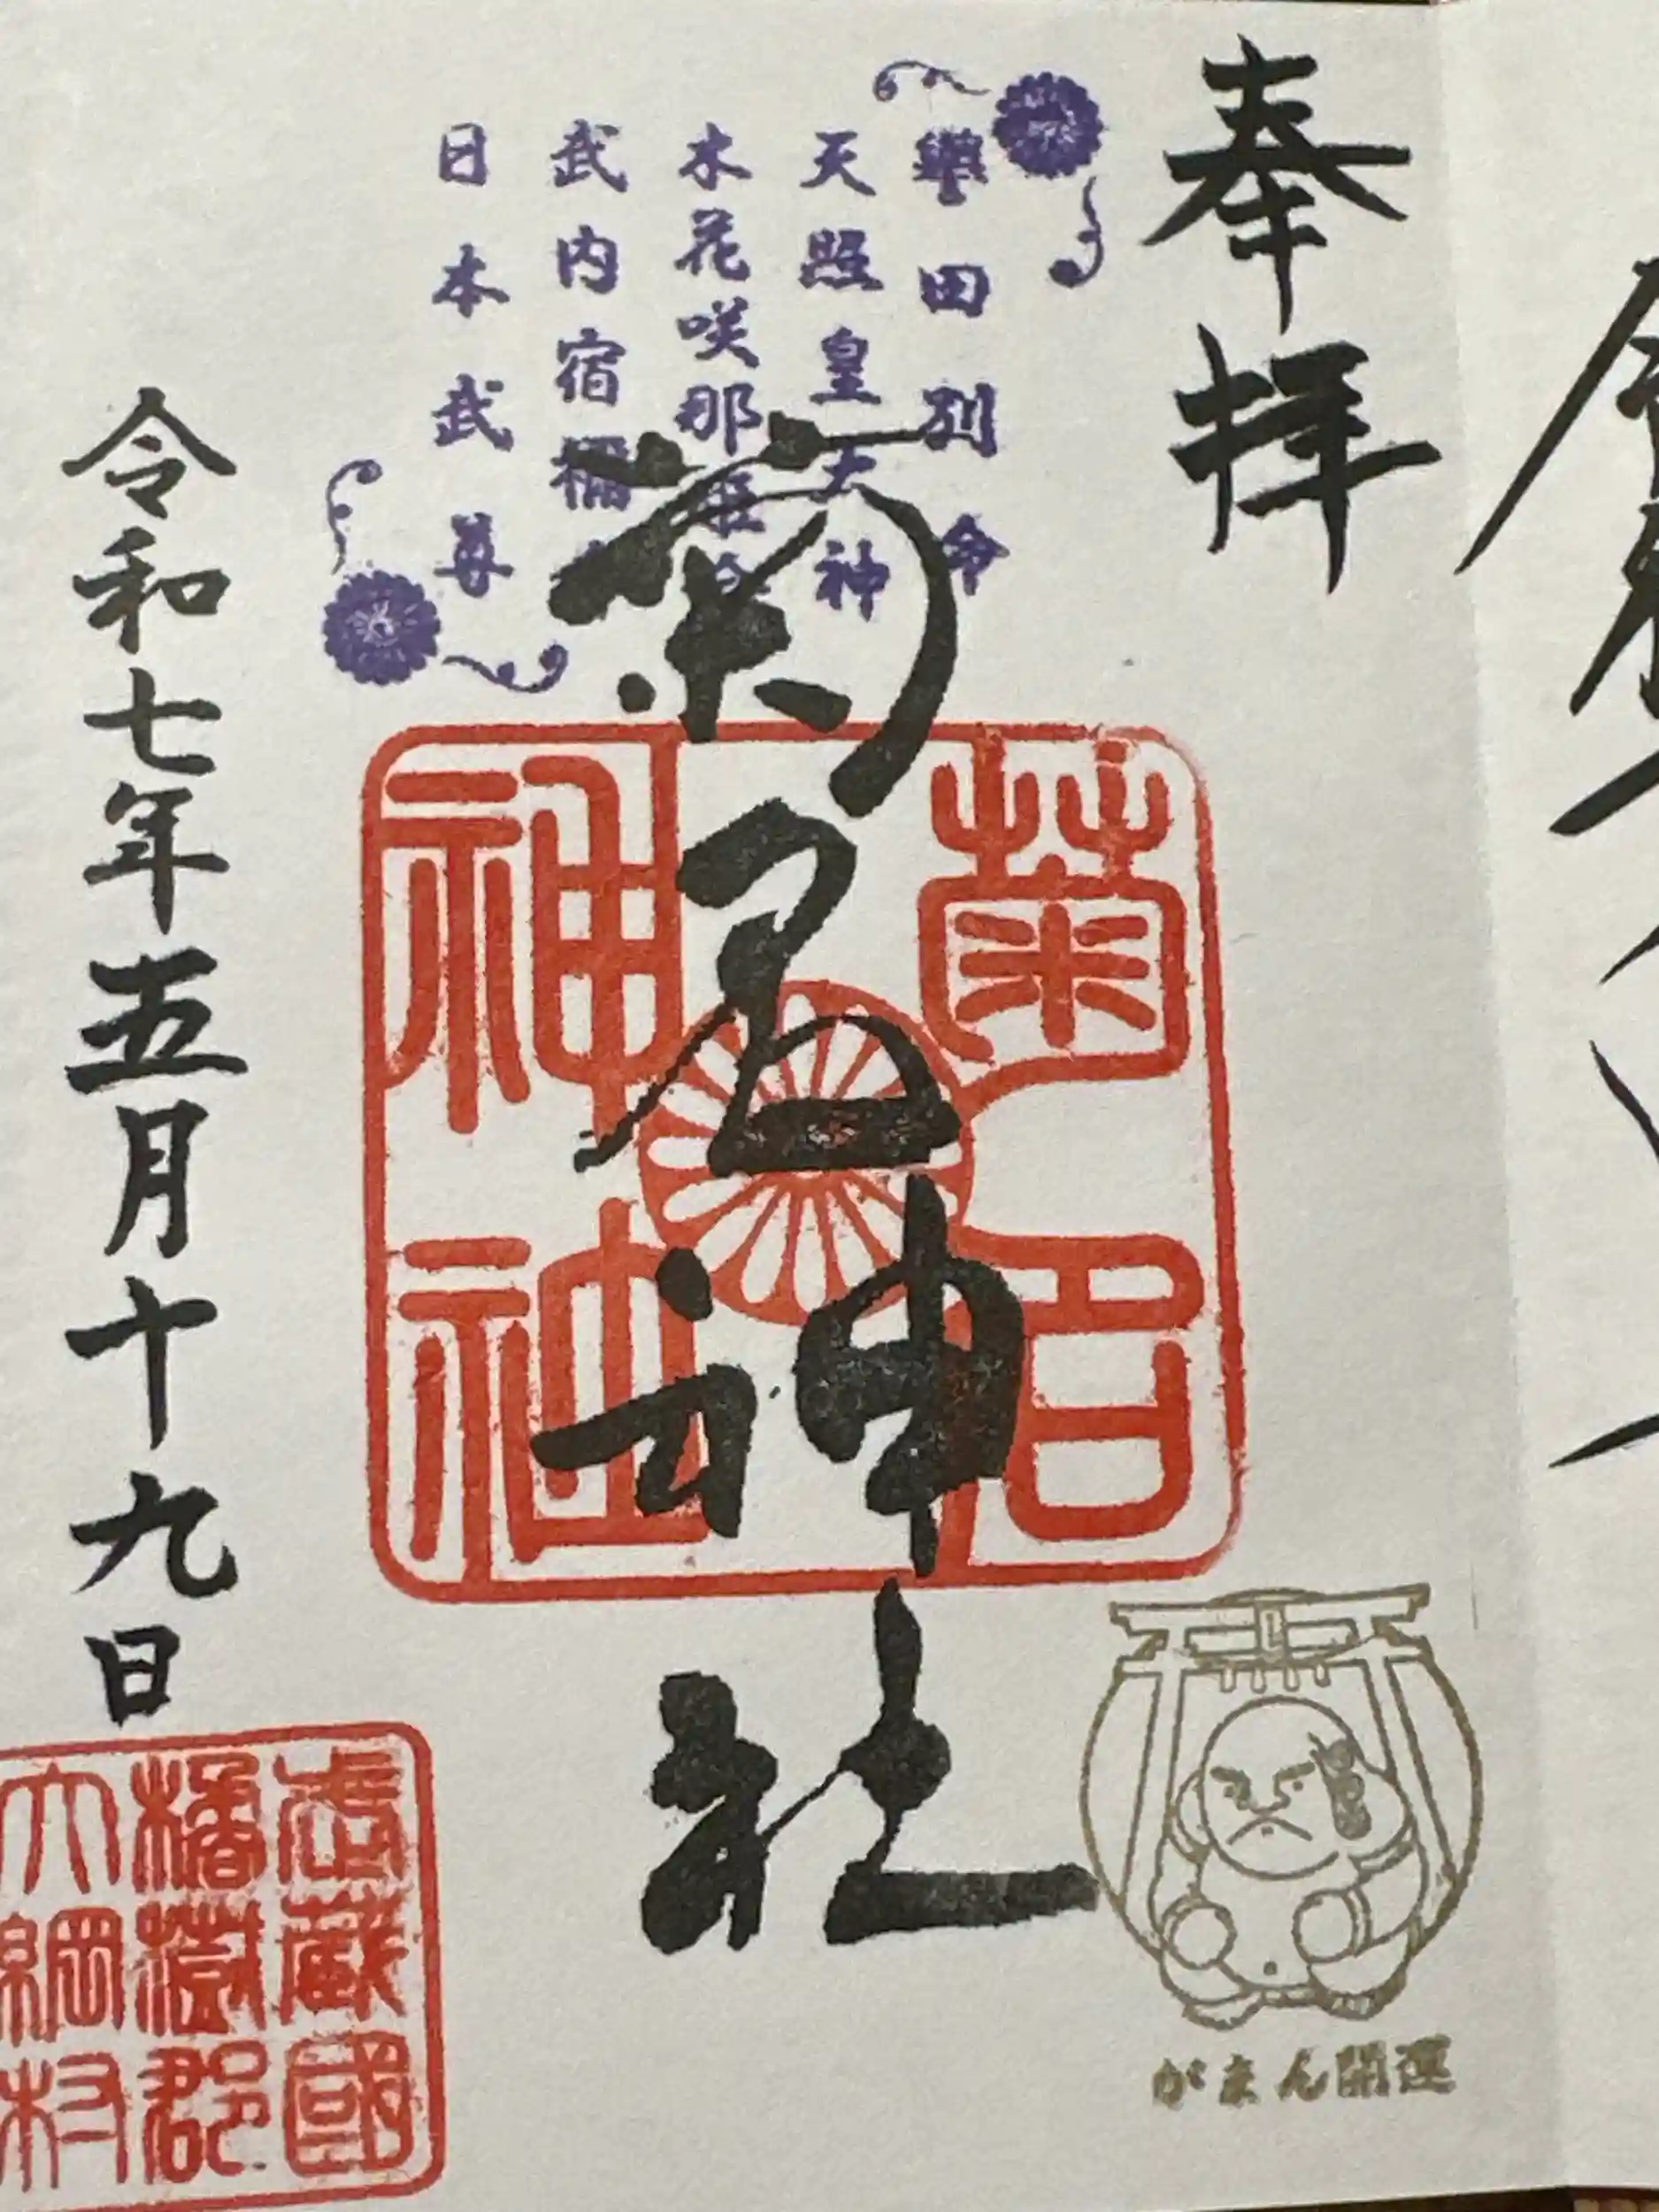 奉拝
譽田別命
天照皇大神
木花咲那姫命
武内宿禰命
日本武尊
菊名神社
菊名神社
令和七年五月十九日
武蔵國
橘樹郡
大綱村
がまん開運